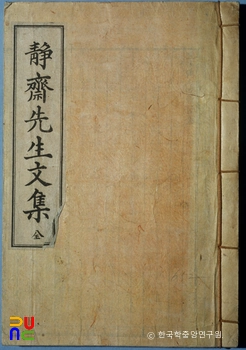 靜齋先生文集
全
© 한국학중앙연구원